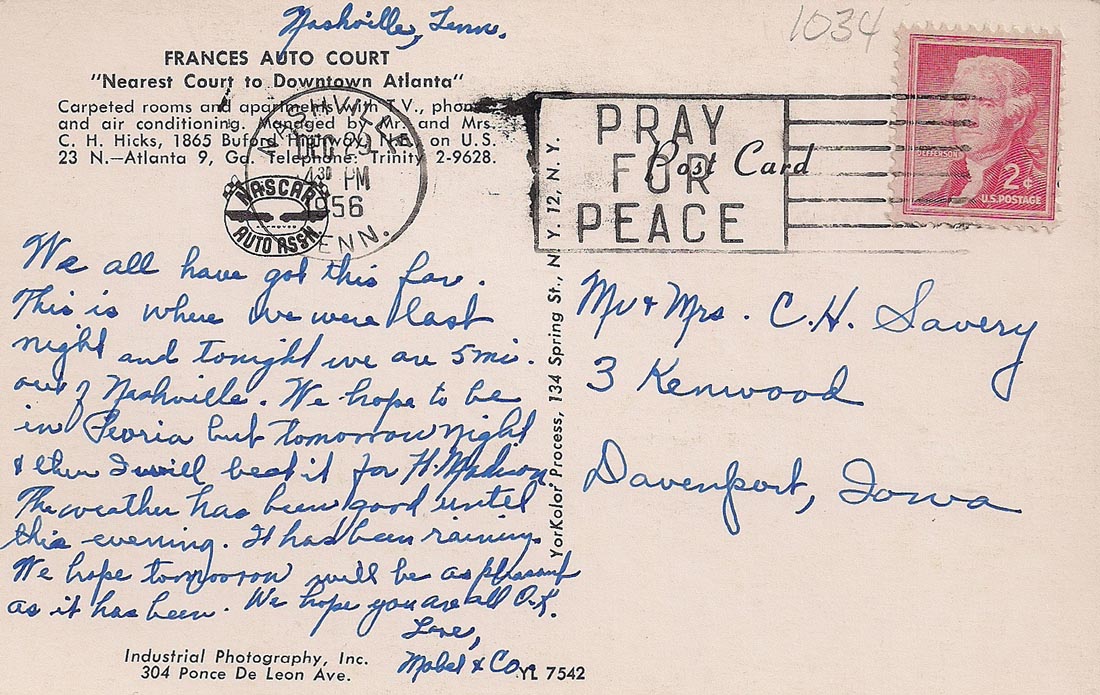 Nashville, Tenn.
1034
FRANCES AUTO COURT
"Nearest Court to Downtown Atlanta"
Carpeted rooms and apartments with T.V., phones
and air conditioning. Managed by Mr. and Mrs.
C. H. Hicks, 1865 Buford Highway, N.E. on U.S.
23 N.—Atlanta 9, Ga. Telephone: Trinity 2-9628.
NASHVILLE
DEC
4 30 PM
1956
TENN.
NASCAR
AUTO ASSN.
PRAY
FOR
PEACE
Post Card
JEFFERSON
2¢
U.S. POSTAGE
We all have got this far.
This is where we were last
night and tonight we are 5 mi.
out of Nashville. We hope to be
in Peoria but tomorrow night
& then I will beat it for Ft. Madison
The weather has been good until
this evening. It has been raining.
We hope tomorrow will be as pleasant
as it has been. We hope you are all O.K.
Love,
Mabel & Co.
YorKolor Process, 134 Spring St., N. Y. 12, N. Y.
Mr & Mrs. C.H. Savery
3 Kenwood
Davenport, Iowa
Industrial Photography, Inc.
304 Ponce De Leon Ave.
YL 7542